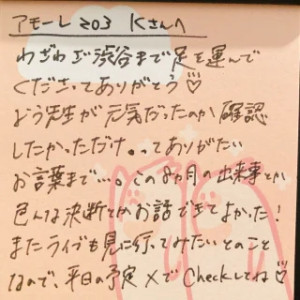 アモーレ203 Kさんへ
わざわざ渋谷まで足を運んで
くださってありがとう♡
どう先生が元気だったのか確認
したかっただけ。。てありがたい
お言葉まで…。この8ヵ月の出来事とか
色んな決断とかお話できてよかった!
またライブも見に行ってみたいとのこと
なので、平日の予定 XでCheckしてね♡